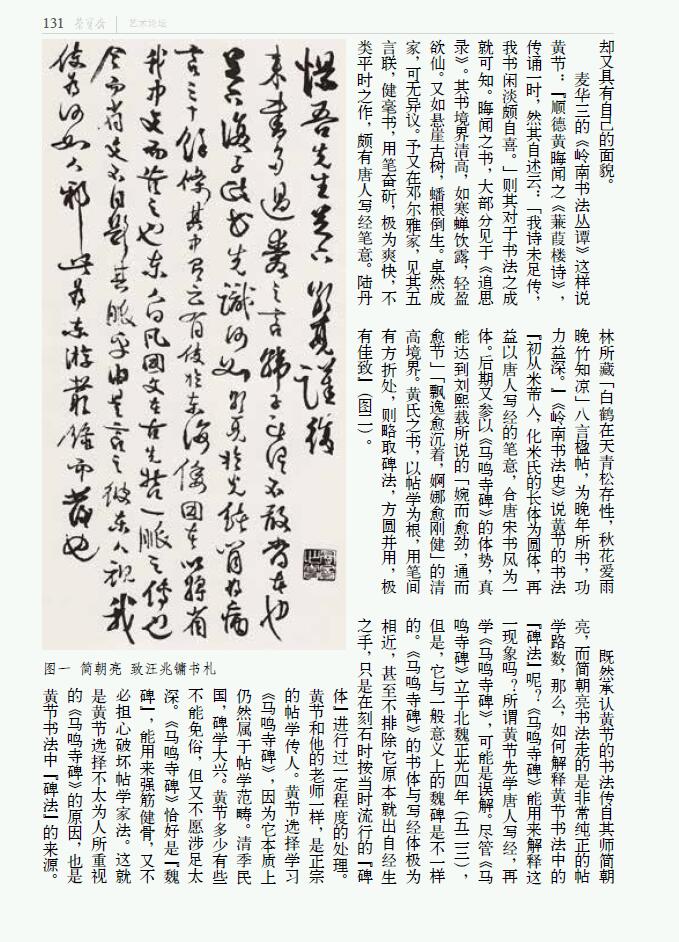 131 荣宝斋 艺术论坛
却又具有自己的面貌。
麦华三的《岭南书法丛谭》这样说
黄节：『顺德黄晦闻之《蒹葭楼诗》，
传诵一时，然其自述云：「我诗未足传，
我书闲淡颇自喜。」则其对于书法之成
就可知。晦闻之书，大部分见于《追思
录》。其书境界清高，如寒蝉饮露，轻盈
欲仙。又如悬崖古树，蟠根倒生。卓然成
家，可无异议。予又在邓尔雅家，见其五
言联，健毫书，用笔奋斫，极为爽快，不
类平时之作，颇有唐人写经笔意。陆丹
林所藏「白鹤在天青松存性，秋花爱雨
晚竹知凉」八言楹帖，为晚年所书，功
力益深。』《岭南书法史》说黄节的书法
『初从米芾入，化米氏的长体为圆体，再
益以唐人写经的笔意，合唐宋书风为一
体。后期又参以《马鸣寺碑》的体势，真
能达到刘熙载所说的「婉而愈劲，通而
愈节」「飘逸愈沉着，婀娜愈刚健」的清
高境界。黄氏之书，以帖学为根，用笔间
有方折处，则略取碑法，方圆并用，极
有佳致』（图二）。
既然承认黄节的书法传自其师简朝
亮，而简朝亮书法走的是非常纯正的帖
学路数，那么，如何解释黄节书法中的
『碑法』呢？《马鸣寺碑》能用来解释这
一现象吗？所谓黄节先学唐人写经，再
学《马鸣寺碑》，可能是误解。尽管《马
鸣寺碑》立于北魏正光四年（五二三），
但是，它与一般意义上的魏碑是不一样
的。《马鸣寺碑》的书体与写经体极为
相近，甚至不排除它原本就出自经生
之手，只是在刻石时按当时流行的『碑
体』进行过一定程度的处理。
黄节和他的老师一样，是正宗
的帖学传人。黄节选择学习
《马鸣寺碑》，因为它本质上
仍然属于帖学范畴。清季民
国，碑学大兴。黄节多少有些
不能免俗，但又不愿涉足太
深。《马鸣寺碑》恰好是『魏
碑』，能用来强筋健骨，又不
必担心破坏帖学家法。这就
是黄节选择不太为人所重视
的《马鸣寺碑》的原因，也是
黄节书法中『碑法』的来源。
惕吾先生足下朝亮谨复
图一 简朝亮 致汪兆镛书札